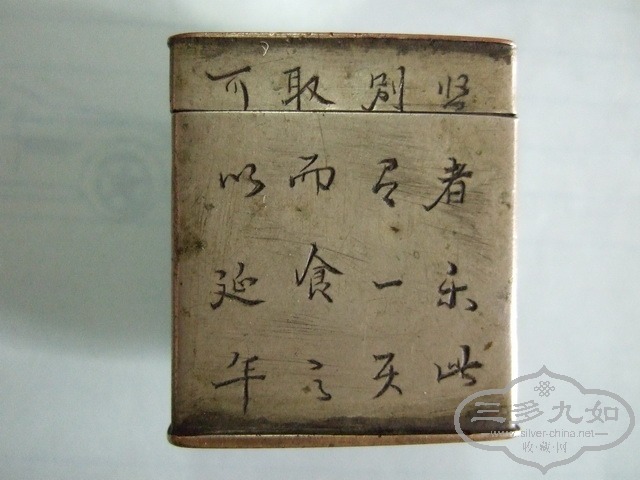 贤者乐此
别有一天
取而食之
可以延年
三多九如
www.silver-china.net
收·藏·网